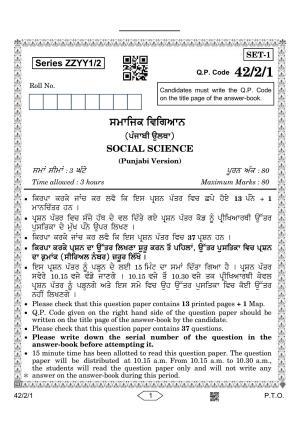 SET-1
Series ZZYY1/2
Q.P. Code 42/2/1
Roll No.
Candidates must write the Q.P. Code
on the title page of the answer-book.
ਸਮਾਜਿਕ ਵਿਗਿਆਨ
(ਪੰਜਾਬੀ ਉਲਥਾ)
SOCIAL SCIENCE
(Punjabi Version)
ਸਮਾਂ ਸੀਮਾਂ : 3 ਘੰਟੇ ਪੂਰਣ ਅੰਕ : 80
Time allowed : 3 hours Maximum Marks : 80
• ਕਿਰਪਾ ਕਰਕੇ ਜਾਂਚ ਕਰ ਲਵੋ ਕਿ ਇਸ ਪ੍ਰਸ਼ਨ ਪੱਤਰ ਵਿਚ ਛਪੇ ਹੋਏ 13 ਪੰਨੇ + 1
ਮਾਨਚਿੱਤਰ ਹਨ ।
• ਪ੍ਰਸ਼ਨ ਪੱਤਰ ਵਿਚ ਸੱਜੇ ਹੱਥ ਦੇ ਵਲ ਦਿੱਤੇ ਗਏ ਪ੍ਰਸ਼ਨ ਪੱਤਰ ਕੋਡ ਨੂੰ ਪ੍ਰੀਖਿਆਰਥੀ ਉੱਤਰ
ਪੁਸਤਿਕਾ ਦੇ ਮੁੱਖ ਪੰਨੇ ਉਪਰ ਲਿਖਣ ।
• ਕਿਰਪਾ ਕਰਕੇ ਜਾਂਚ ਕਰ ਲਵੋ ਕਿ ਇਸ ਪ੍ਰਸ਼ਨ ਪੱਤਰ ਵਿਚ 37 ਪ੍ਰਸ਼ਨ ਹਨ ।
• ਕਿਰਪਾ ਕਰਕੇ ਪ੍ਰਸ਼ਨ ਦਾ ਉੱਤਰ ਲਿਖਣਾ ਸ਼ੁਰੂ ਕਰਨ ਤੋਂ ਪਹਿਲਾਂ, ਉੱਤਰ ਪੁਸਤਿਕਾ ਵਿਚ ਪ੍ਰਸ਼ਨ
ਦਾ ਕ੍ਰਮਾਂਕ (ਸੀਰਿਅਲ ਨੰਬਰ) ਜ਼ਰੂਰ ਲਿੱਖੋ ।
• ਇਸ ਪ੍ਰਸ਼ਨ ਪੱਤਰ ਨੂੰ ਪੜ੍ਹਨ ਦੇ ਲਈ 15 ਮਿੰਟ ਦਾ ਸਮਾਂ ਦਿੱਤਾ ਗਿਆ ਹੈ । ਪ੍ਰਸ਼ਨ ਪੱਤਰ
ਸਵੇਰੇ 10.15 ਵਜੇ ਵੰਡੇ ਜਾਣਗੇ । 10.15 ਵਜੇ ਤੋਂ 10.30 ਵਜੇ ਤਕ ਪ੍ਰੀਖਿਆਰਥੀ ਕੇਵਲ
ਪ੍ਰਸ਼ਨ ਪੱਤਰ ਨੂੰ ਪੜ੍ਹਨਗੇ ਅਤੇ ਇਸ ਸਮੇਂ ਵਿਚ ਉਹ ਉੱਤਰ ਪੁਸਤਿਕਾ ਵਿਚ ਕੋਈ ਉੱਤਰ
ਨਹੀਂ ਲਿਖਣਗੇ ।
• Please check that this question paper contains 13 printed pages + 1 Map.
• Q.P. Code given on the right hand side of the question paper should be
written on the title page of the answer-book by the candidate.
• Please check that this question paper contains 37 questions.
• Please write down the serial number of the question in the
answer-book before attempting it.
• 15 minute time has been allotted to read this question paper. The question
paper will be distributed at 10.15 a.m. From 10.15 a.m. to 10.30 a.m.,
the students will read the question paper only and will not write any
answer on the answer-book during this period.
42/2/1 1 P.T.O.